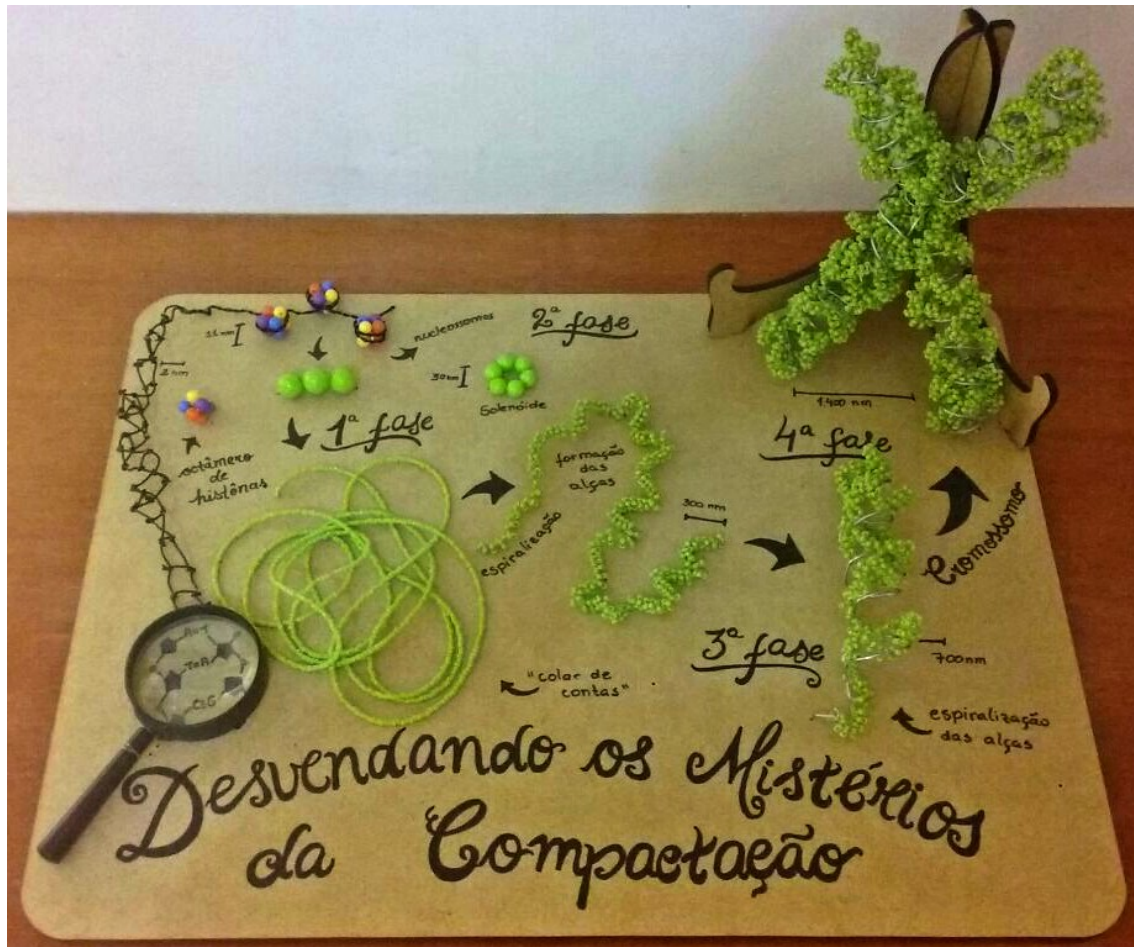 11 nm
nucleossomos
2ª fase
2 nm
30 nm
Solenóide
octâmero
de
histônas
1ª fase
formação
das
alças
espiralização
300 nm
4ª fase
1.400 nm
Cromossomo
3ª fase
700nm
"colar de
contas"
espiralização
das alças
Desvendando os Mistérios
da Compactação